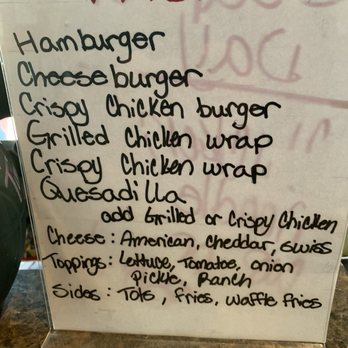 Hamburger
Cheeseburger
Crispy Chicken burger
Grilled Chicken wrap
Crispy Chicken wrap
Quesadilla
add Grilled or Crispy Chicken
Cheese: American, Cheddar, Swiss
Toppings: Lettuce, Tomatoes, onion
Pickle, Ranch
Sides: Tots, fries, waffle fries